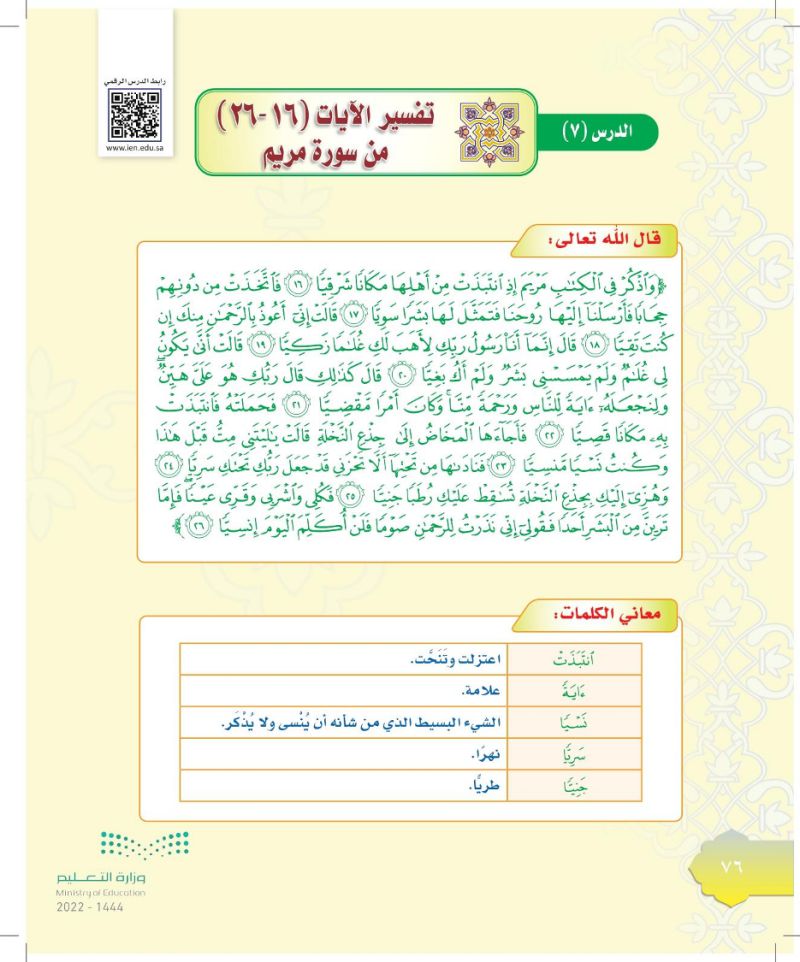 رابط الدرس الرقمي
www.ien.edu.sa
الدرس (٧)
تفسير الآيات (١٦-٢٦)
من سورة مريم
قال الله تعالى:
﴿وَٱذۡكُرۡ فِي ٱلۡكِتَٰبِ مَرۡيَمَ إِذِ ٱنتَبَذَتۡ مِنۡ أَهۡلِهَا مَكَانٗا شَرۡقِيّٗا ١٦ فَٱتَّخَذَتۡ مِن دُونِهِمۡ
حِجَابٗا فَأَرۡسَلۡنَآ إِلَيۡهَا رُوحَنَا فَتَمَثَّلَ لَهَا بَشَرٗا سَوِيّٗا ١٧ قَالَتۡ إِنِّيٓ أَعُوذُ بِٱلرَّحۡمَٰنِ مِنكَ إِن
كُنتَ تَقِيّٗا ١٨ قَالَ إِنَّمَآ أَنَا۠ رَسُولُ رَبِّكِ لِأَهَبَ لَكِ غُلَٰمٗا زَكِيّٗا ١٩ قَالَتۡ أَنَّىٰ يَكُونُ
لِي غُلَٰمٞ وَلَمۡ يَمۡسَسۡنِي بَشَرٞ وَلَمۡ أَكُ بَغِيّٗا ٢٠ قَالَ كَذَٰلِكِ قَالَ رَبُّكِ هُوَ عَلَيَّ هَيِّنٞۖ
وَلِنَجۡعَلَهُۥٓ ءَايَةٗ لِّلنَّاسِ وَرَحۡمَةٗ مِّنَّاۚ وَكَانَ أَمۡرٗا مَّقۡضِيّٗا ٢١ فَحَمَلَتۡهُ فَٱنتَبَذَتۡ
بِهِۦ مَكَانٗا قَصِيّٗا ٢٢ فَأَجَآءَهَا ٱلۡمَخَاضُ إِلَىٰ جِذۡعِ ٱلنَّخۡلَةِ قَالَتۡ يَٰلَيۡتَنِي مِتُّ قَبۡلَ هَٰذَا
وَكُنتُ نَسۡيٗا مَّنسِيّٗا ٢٣ فَنَادَىٰهَا مِن تَحۡتِهَآ أَلَّا تَحۡزَنِي قَدۡ جَعَلَ رَبُّكِ تَحۡتَكِ سَرِيّٗا ٢٤
وَهُزِّيٓ إِلَيۡكِ بِجِذۡعِ ٱلنَّخۡلَةِ تُسَٰقِطۡ عَلَيۡكِ رُطَبٗا جَنِيّٗا ٢٥ فَكُلِي وَٱشۡرَبِي وَقَرِّي عَيۡنٗاۖ فَإِمَّا
تَرَيِنَّ مِنَ ٱلۡبَشَرِ أَحَدٗا فَقُولِيٓ إِنِّي نَذَرۡتُ لِلرَّحۡمَٰنِ صَوۡمٗا فَلَنۡ أُكَلِّمَ ٱلۡيَوۡمَ إِنسِيّٗا ٢٦﴾
معاني الكلمات:
ٱنتَبَذَتۡ اعتزلت وتَنَحَّت.
ءَايَةٗ علامة.
نَسۡيٗا الشيء البسيط الذي من شأنه أن يُنْسى ولا يُذْكَر.
سَرِيّٗا نهرًا.
جَنِيّٗا طريًّا.
وزارة التعليم
Ministry of Education
2022 - 1444
٧٦